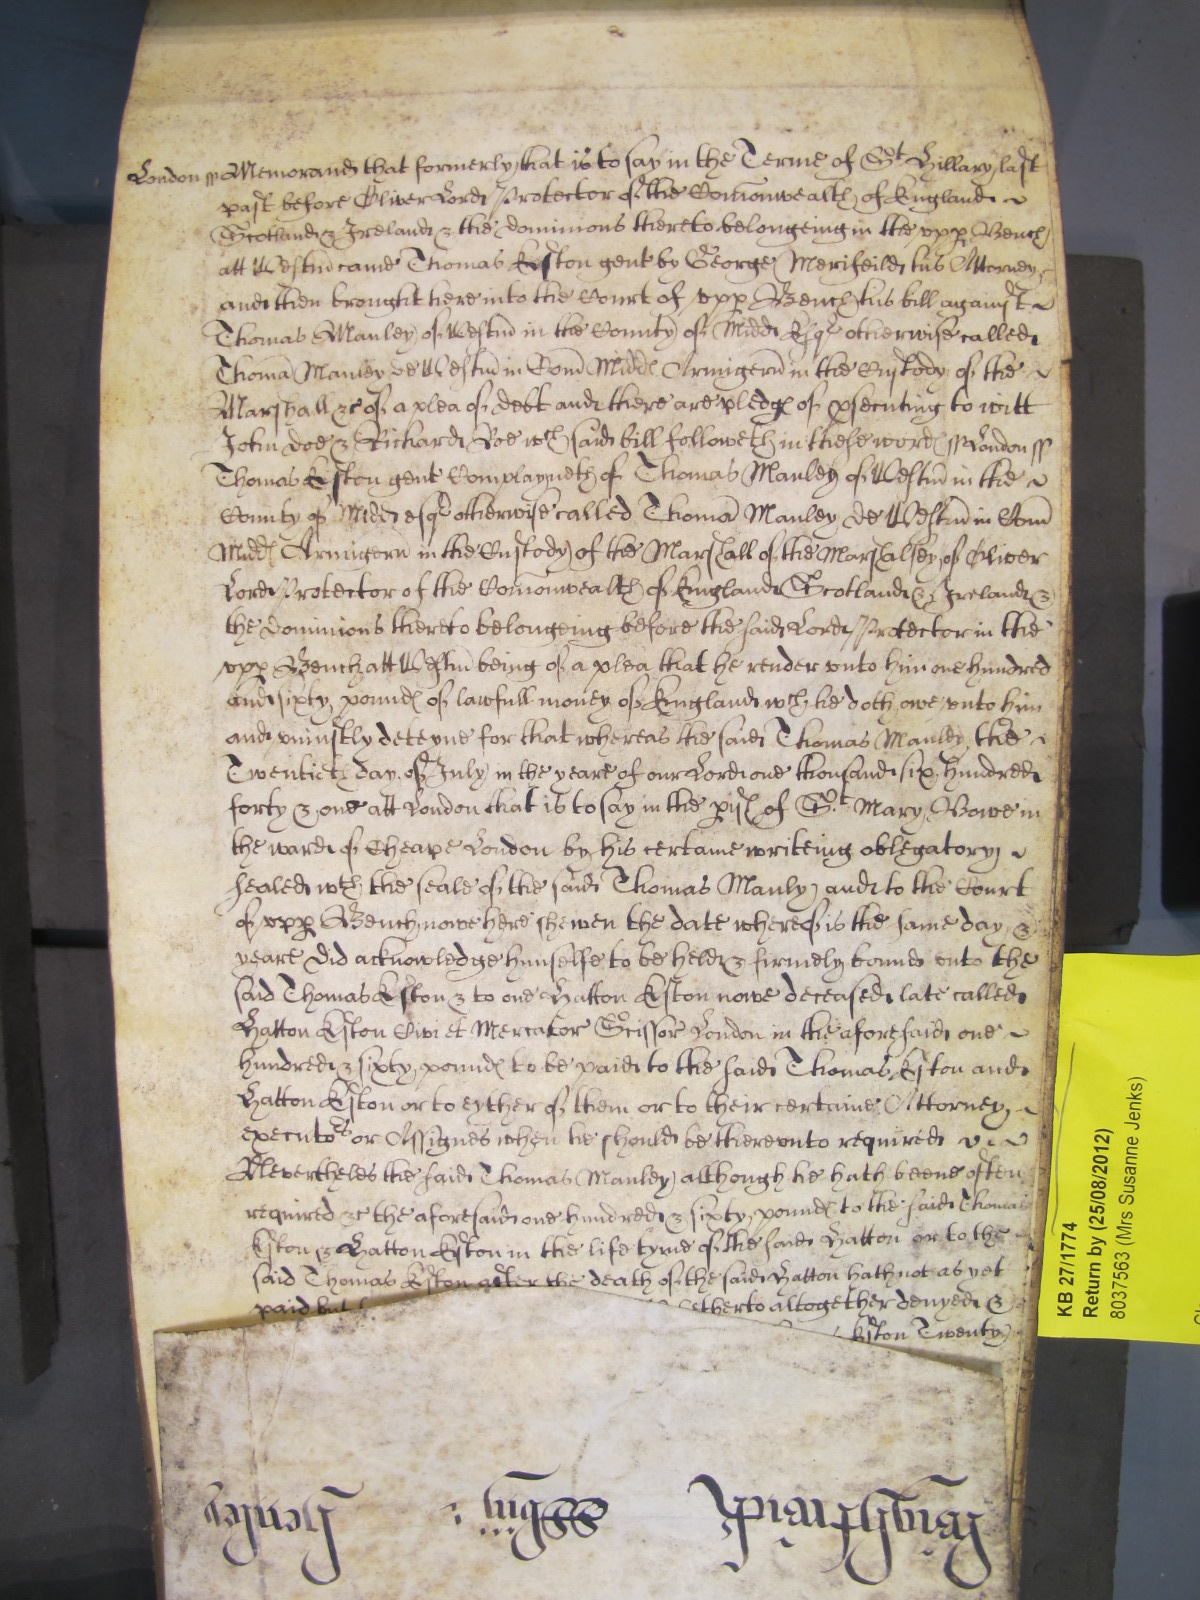 London ss Memorand that formerly that is to say in the Terme of St Hillary last
past before Oliver Lord Protector of the Comonwealth of England
Scotland & Ireland & the dominions thereto belongeing in the upp Bench
att Westm came Thomas Eston gent by George Merifeild his Attorney
and then brought here into the Court of upp Bench his bill against
Thomas Manley of Westm in the County of Midd Esqr otherwise called
Thoma Manley de Westm in Com Midd Armigerm in the Custody of the
Marshall &c of a plea of debt and there are pledg of psecuting to witt
John Doe & Richard Roe wch said bill followeth in these word ss London ss
Thomas Eston gent Complayneth of Thomas Manley of Westm in the
County of Midd esqr otherwise called Thoma Manley de Westm in Com
Midd Armigerm in the Custody of the Marshall of the Marshalsey of Oliver
Lord Protector of the Comonwealth of England Scotland & Ireland &
the dominions thereto belongeing before the said Lord Protector in the
upp Bench att Westm being of a plea that he render unto him one hundred
and sixty pound of lawfull money of England wch he doth owe unto him
and uniustly deteyne for that whereas the said Thomas Manley the
Twentieth day of July in the yeare of our Lord one thousand six hundred
forty & one att London that is to say in the pish of St Mary Bowe in
the ward of Cheape London by his certaine writeing obligatory
sealed wth the seale of the said Thomas Manly and to the Court
of upp Bench nowe here shewen the date whereof is the same day &
yeare did acknowledge himselfe to be held & firmely bound unto the
said Thomas Eston & to one Hatton Eston nowe deceased late called
Hatton Eston Civi et Mercator Scissor London in the aforesaid one
hundred & sixty pound to be paid to the said Thomas Eston and
Hatton Eston or to eyther of them or to their certaine Attorney
executors or Assignes when he should be thereunto required
Neverthelesse the said Thomas Manley although he hath beene often
required &c the aforesaid one hundred & sixty pound to the said Thomas
Eston & Hatton Eston in the life tyme of the said Hatton or to the
said Thomas Eston after the death of the said Hatton hath not as yet
paid but hetherto altogether denyed &
Eston Twenty
KB 27/1774
Return by (25/08/2012)
8037563 (Mrs Susanne Jenks)
Henley